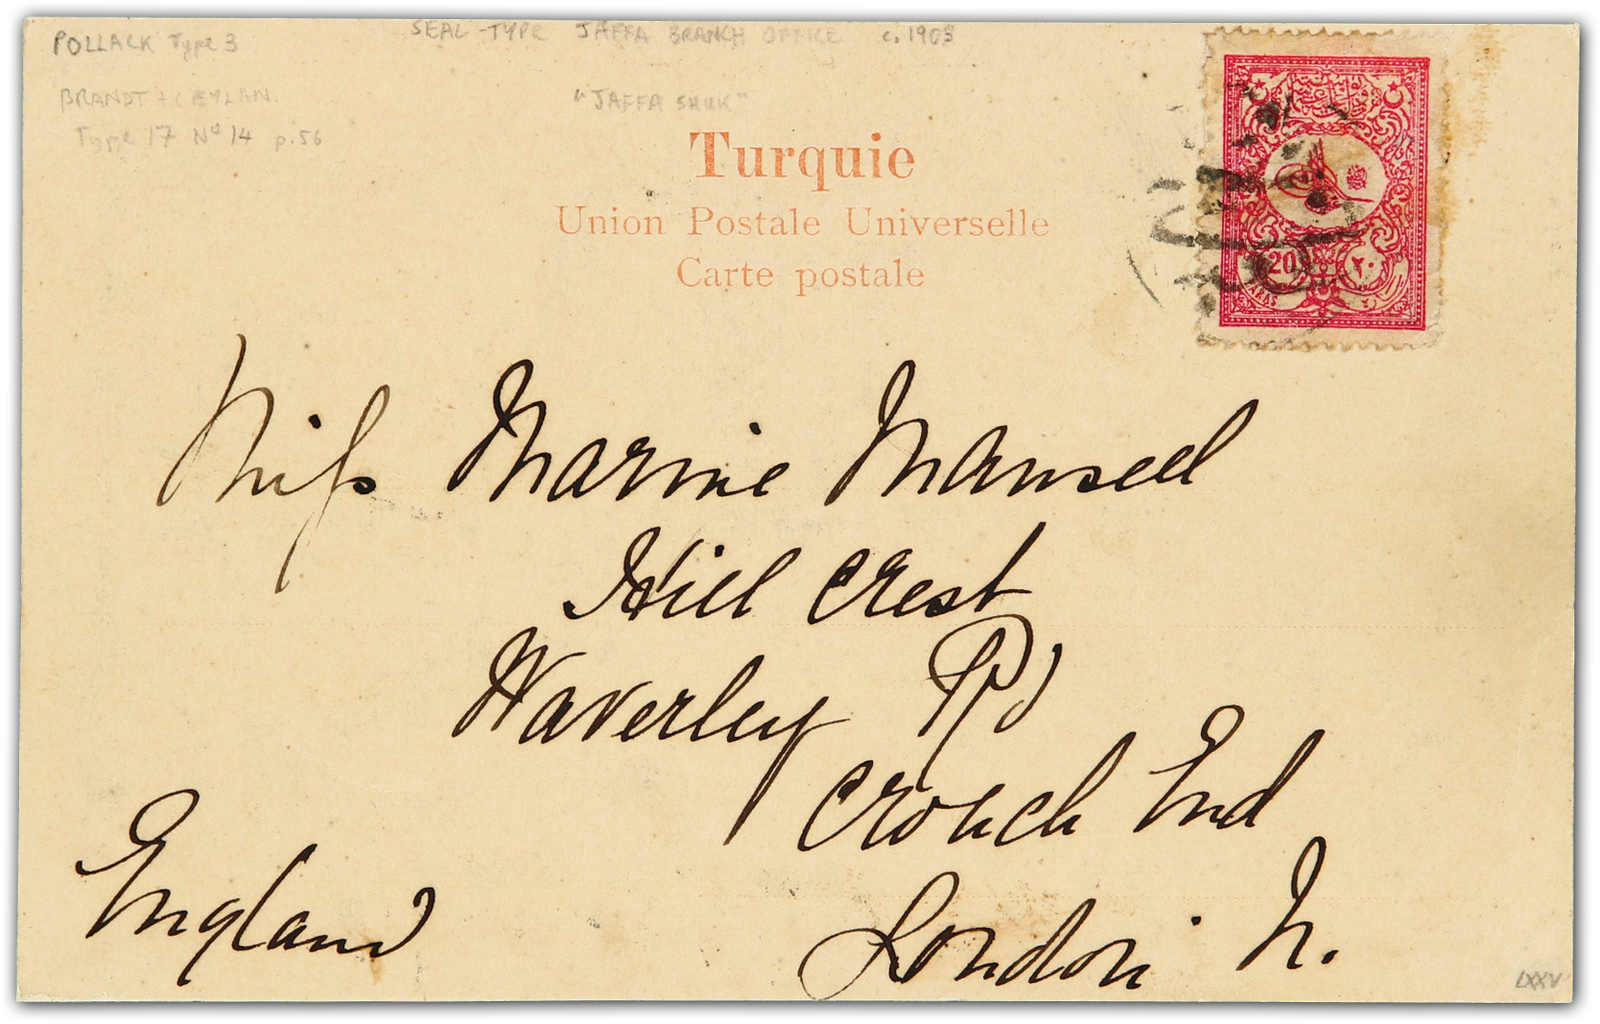 POLLACK Type 3
SEAL-TYPE JAFFA BRANCH OFFICE c.1903
BRANDT + CEYLAN
Type 17 No 14 p.56
"JAFFA SHUK"
Turquie
Union Postale Universelle
Carte postale
20
٢٠
PARAS
Miss Marine Mansell
Hill Crest
Waverley Rd
Crouch End
London N.
England
LXXV